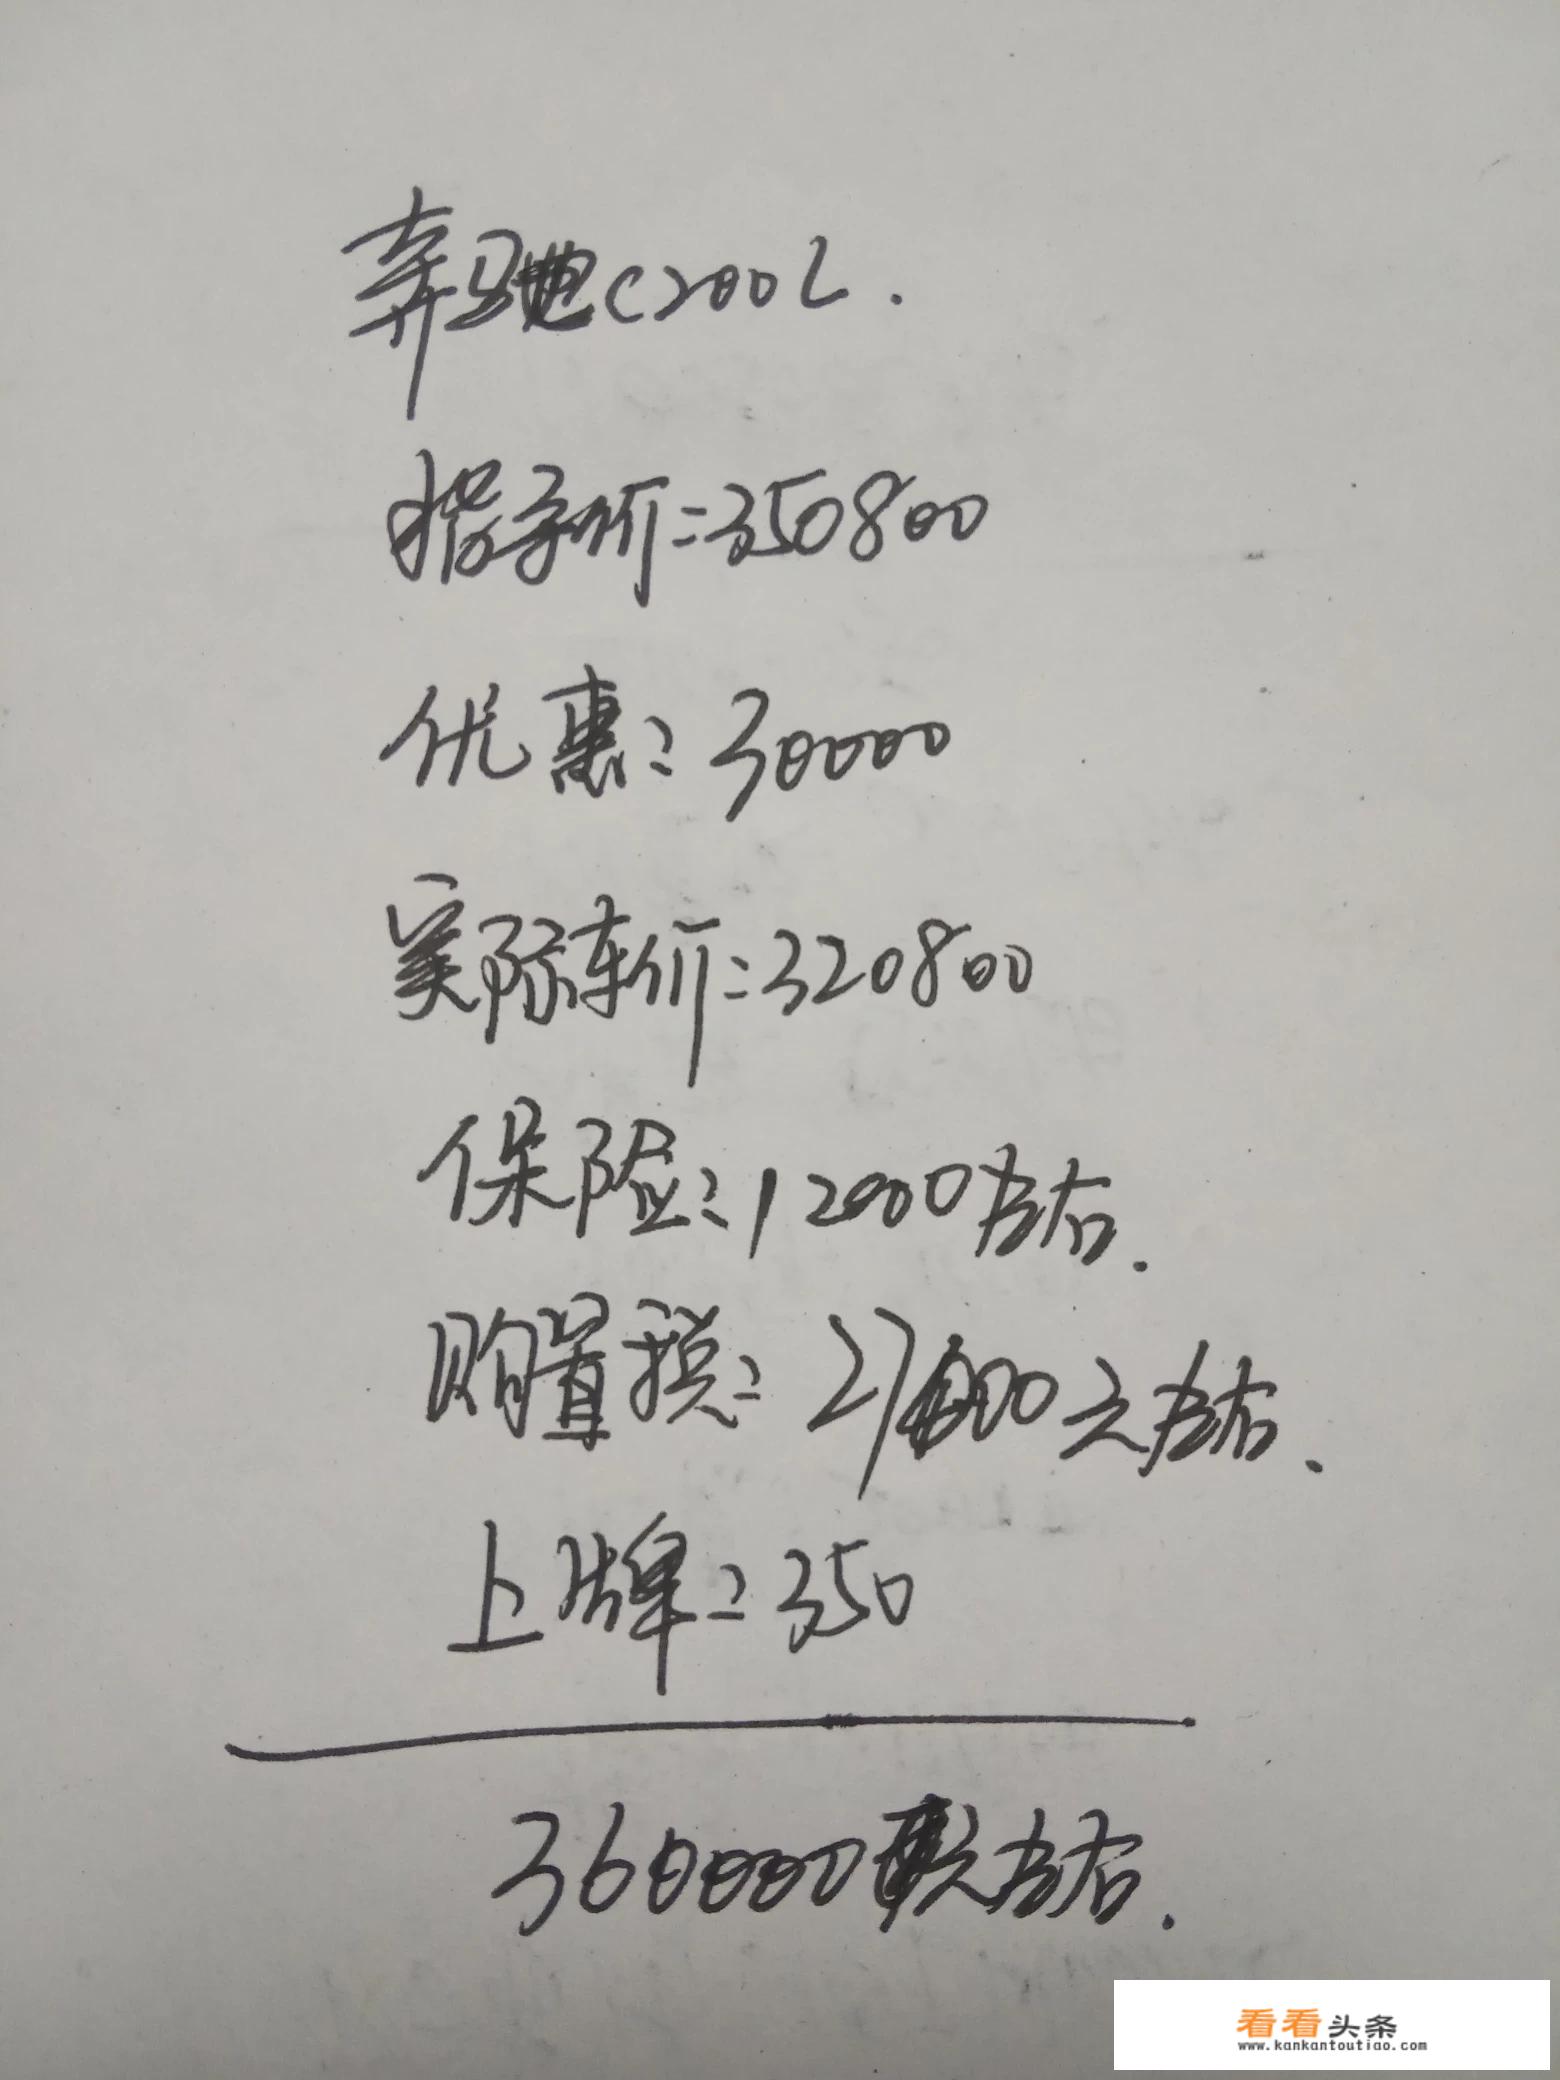 奔驰C200L.
指导价=350800
优惠=30000
实际车价=320800
保险=12000左右.
购置税=27000元左右.
上牌=350
360000左右.
看看头条
www.kankantoutiao.com